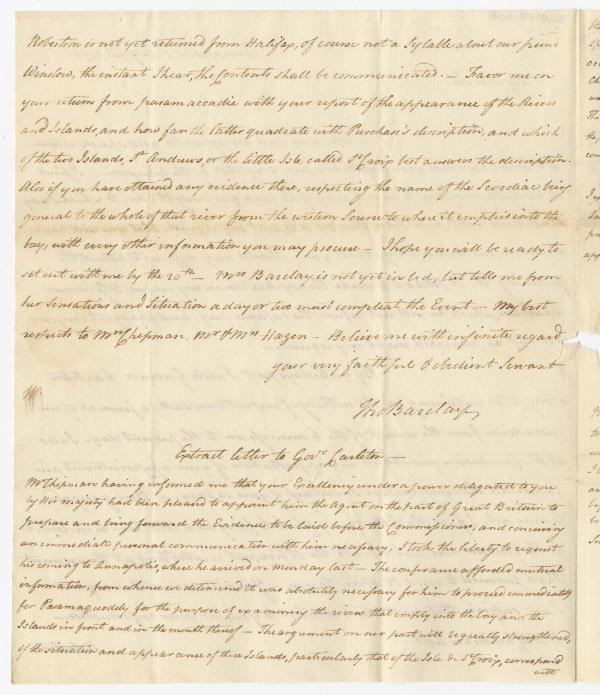 Robertson is not yet returned from Halifax, of course not a Syllable about our friend
Winslow, the instant I hear, the Contents shall be communicated. — Favor me on
your return from pasamaccadie with your report of the appearance of the Rivers
and Islands, and how far the latter quadrate with Purchase's description, and which
of the two Islands, St Andrews, or the little Isle called St Croix best answers the description.
Also if you have obtained any evidence there, respecting the name of the Scoodiac being
general to the whole of that river from the western Source to where it empties into the
bay, with every other information you may procure — I hope you will be ready to
set out with me by the 20th — Mrs Barclay is not yet in bed, but tells me from
her Sensations and Situation a day or two must compleat the Event — My best
respects to Mrs Chipman, Mr & Mrs Hazen — Believe me with infinite regard
your very faithful & obedient Servant
Tho Barclay
Extract letter to Govr Carleton —
Mr Chipman having informed me that your Excellency under a power delegated to you
by His Majesty had been pleased to appoint him the Agent on the part of Great Britain to
prepare and bring forward the Evidence to be laid before the Commissioners, and conceiving
an immediate personal communication with him necessary, I took the liberty to request
his coming to Annapolis, where he arrived on Monday last — The conference afforded mutual
information, from whence we determined it was absolutely necessary for him to proceed immediately
for Passamaquoddy for the purpose of examining the rivers that empty into the bay and the
Islands in front and in the mouth thereof — The argument on our part will be greatly strengthened,
if the situation and appearance of these Islands, particularly that of the Isle de St Croix, correspond
with